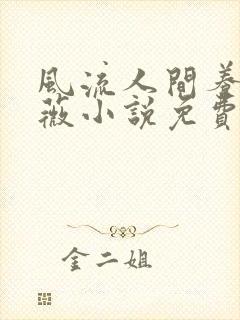 風流人間養
薇小說免費
金二姐